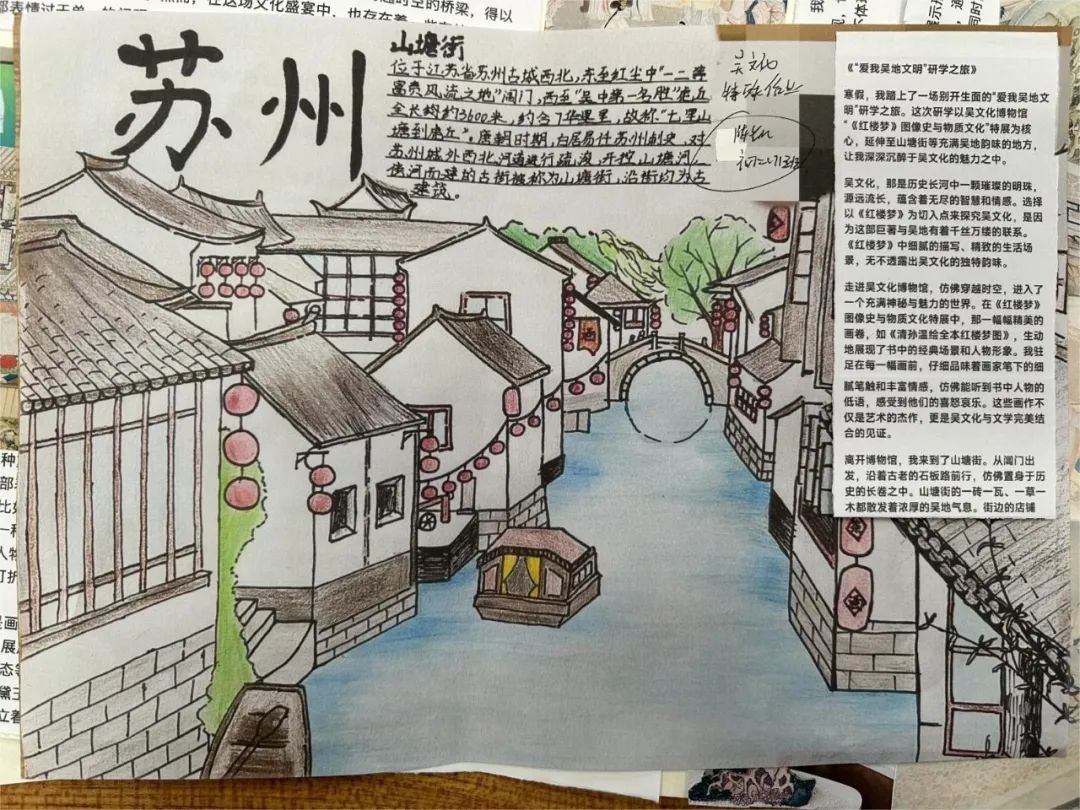 苏州
山塘街
位于江苏省苏州古城西北,东至红尘中"一二等
富贵风流之地"阊门,西至"吴中第一名胜"虎丘
全长约3600米,约合7华里,故称"七里山
塘到虎丘"。唐朝时期,白居易任苏州刺史,对
苏州城外西北河道进行疏浚,开挖山塘河,
傍河而建的古街被称为山塘街,沿街均为古
建筑。
吴文化
特殊作业
《“爱我吴地文明”研学之旅》
寒假,我踏上了一场别开生面的“爱我吴地文
明”研学之旅。这次研学以吴文化博物馆
“《红楼梦》图像史与物质文化”特展为核
心,延伸至山塘街等充满吴地韵味的地方,
让我深深沉醉于吴文化的魅力之中。
吴文化,那是历史长河中一颗璀璨的明珠,
源远流长,蕴含着无尽的智慧和情感。选择
以《红楼梦》为切入点来探究吴文化,是因
为这部巨著与吴地有着千丝万缕的联系。
《红楼梦》中细腻的描写、精致的生活场
景,无不透露出吴文化的独特韵味。
走进吴文化博物馆,仿佛穿越时空,进入了
一个充满神秘与魅力的世界。在《红楼梦》
图像史与物质文化特展中,那一幅幅精美的
画卷,如《清孙温绘全本红楼梦图》,生动
地展现了书中的经典场景和人物形象。我驻
足在每一幅画前,仔细品味着画家笔下的细
腻笔触和丰富情感,仿佛能听到书中人物的
低语,感受到他们的喜怒哀乐。这些画作不
仅是艺术的杰作,更是吴文化与文学完美结
合的见证。
离开博物馆,我来到了山塘街。从阊门出
发,沿着古老的石板路前行,仿佛置身于历
史的长卷之中。山塘街的一砖一瓦、一草一
木都散发着浓厚的吴地气息。街边的店铺
酒